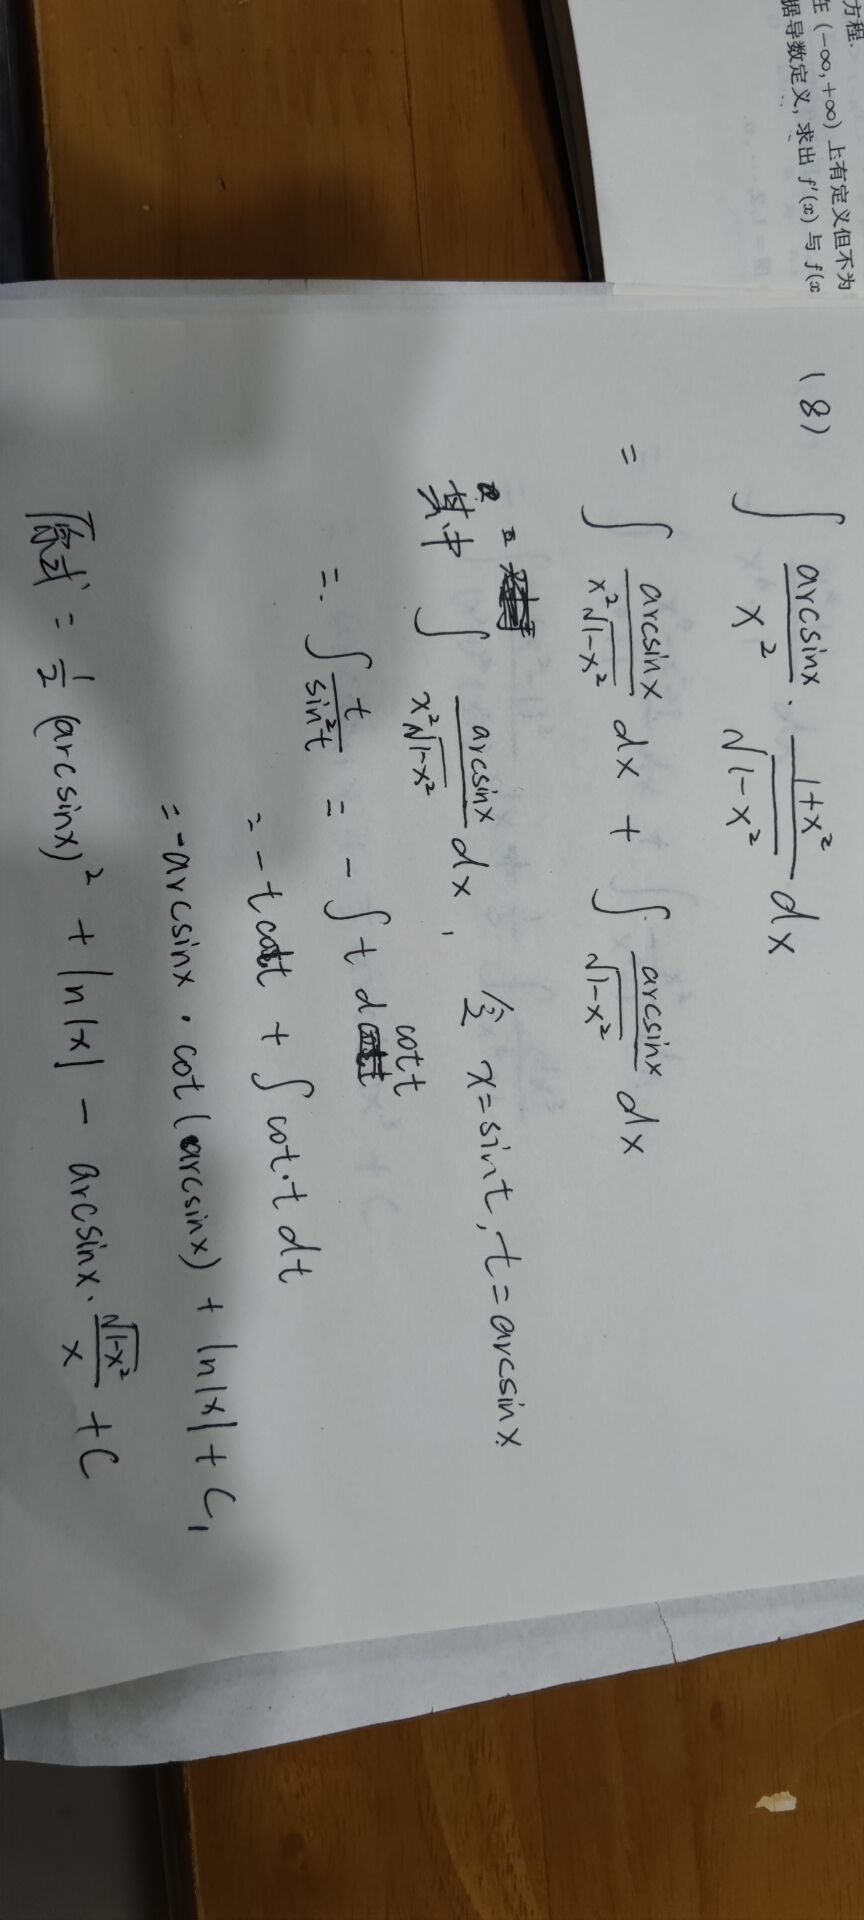 方程.
在 (-∞, +∞) 上有定义但不为
据导数定义, 求出 f'(x) 与 f(x
(8) ∫ arcsinx/x² · 1+x²/√1-x² dx
= ∫ arcsinx/x²√1-x² dx + ∫ arcsinx/√1-x² dx
其中 ∫ arcsinx/x²√1-x² dx, 令 x=sint, t=arcsinx
= ∫ t/sin²t = - ∫ t d cot t
= -t cott + ∫ cot·t dt
= -arcsinx · cot(arcsinx) + ln|x| + C₁
原式 = 1/2 (arcsinx)² + ln|x| - arcsinx · √1-x²/x + C